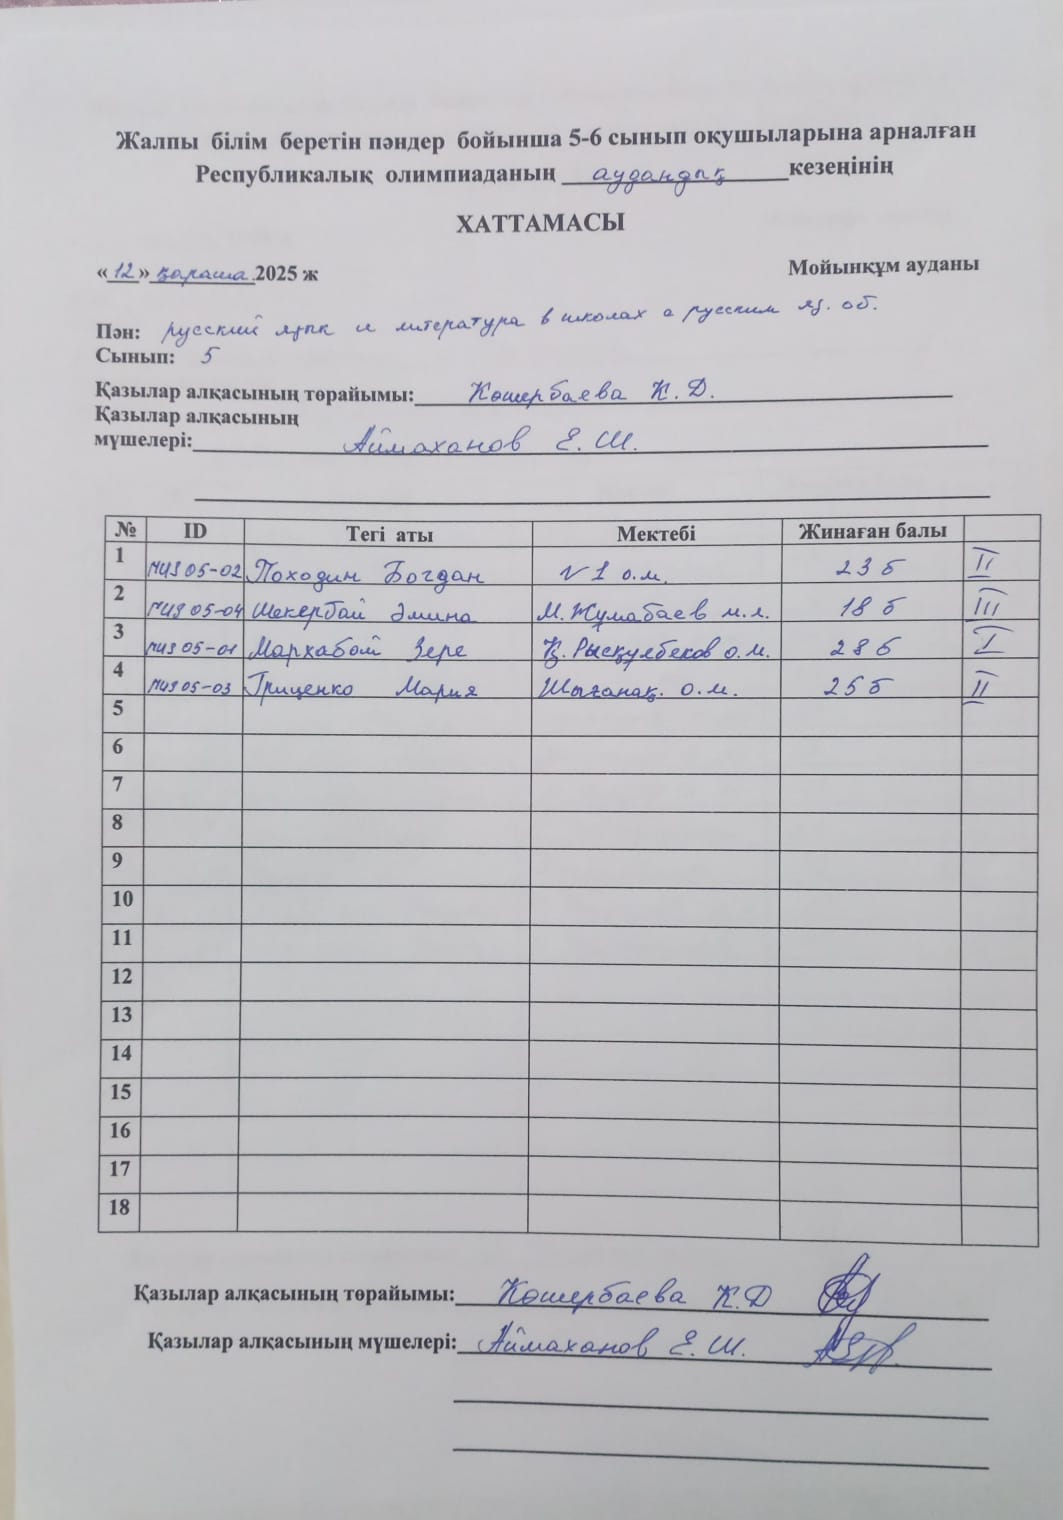 Жалпы білім беретін пәндер бойынша 5-6 сынып оқушыларына арналған
Республикалық олимпиаданың аудандық кезеңінің
ХАТТАМАСЫ
«12» қараша 2025 ж Мойынқұм ауданы
Пән: русский язык и литература в школах с русским яз. об.
Сынып: 5
Қазылар алқасының төрайымы: Көшербаева К.Д.
Қазылар алқасының
мүшелері: Аймаханов Е.Ш.
№ ID Тегі аты Мектебі Жинаған балы
1 МЦ905-02 Походин Богдан №1 о.м. 23 б II
2 МЦ905-04 Шекербай Әмина М.Жұмабаев м.л. 18 б III
3 МЦ905-01 Мархабай Зере Қ.Рысқұлбеков о.м. 28 б I
4 МЦ905-03 Гриценко Мария Шығанақ. о.м. 25 б II
5
6
7
8
9
10
11
12
13
14
15
16
17
18
Қазылар алқасының төрайымы: Көшербаева К.Д
Қазылар алқасының мүшелері: Аймаханов Е.Ш.